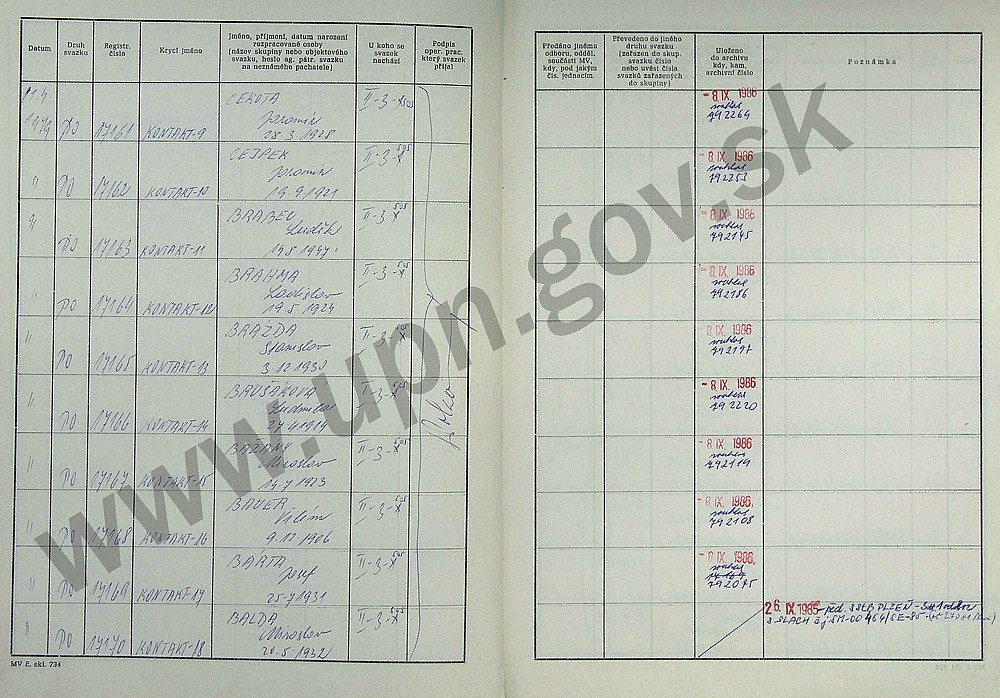 Datum
Druh
svazku
Registr.
číslo
Krycí jméno
Jméno, příjmení, datum narození
rozpracované osoby
(název skupiny nebo objektového
svazku, heslo ag. pátr. svazku
na neznámého pachatele)
U koho se
svazek
nachází
Podpis
oper. prac.
který svazek
přijal
Předáno jinému
odboru, odděl.
součásti MV,
kdy, pod jakým
čís. jednacím
Převedeno do jiného
druhu svazku
(zařazen do skup.
svazku číslo
nebo uvést čísla
svazků zařazených
do skupiny)
Uloženo
do archivu
kdy, kam,
archivní číslo
Poznámka
1979 PO 17161 KONTAKT-9 CEKOTA Jaromír 28.3.1928 II-3-X 505 -8.IX.1986 792264
" PO 17162 KONTAKT-10 CEJPEK Jaromír 19.9.1921 II-3-X 505 -8.IX.1986 792253
" PO 17163 KONTAKT-11 BRABEC Luděk 14.8.1947 II-3-X 505 -8.IX.1986 792145
" PO 17164 KONTAKT-12 BRAHMA Ladislav 19.5.1924 II-3-X 505 -8.IX.1986 792186
" PO 17165 KONTAKT-13 BRAŽDA Stanislav 3.12.1930 II-3-X 505 -8.IX.1986 792197
" PO 17166 KONTAKT-14 Ludmila II-3-X 505 -8.IX.1986 792220
" PO 17167 KONTAKT-15 BAŽANT Miroslav 14.7.1923 II-3-X 505 -8.IX.1986 792119
" PO 17168 KONTAKT-16 BAUER Vilém 9.12.1906 II-3-X 505 -8.IX.1986 792108
" PO 17169 KONTAKT-17 BÁRTA Josef 25.7.1931 II-3-X 505 -8.IX.1986 792075
" PO 17170 KONTAKT-18 BALDA Miroslav 20.5.1932 II-3-X 505
26.IX.1985 - PLZEŇ
MV č. skl. 734
www.upn.gov.sk